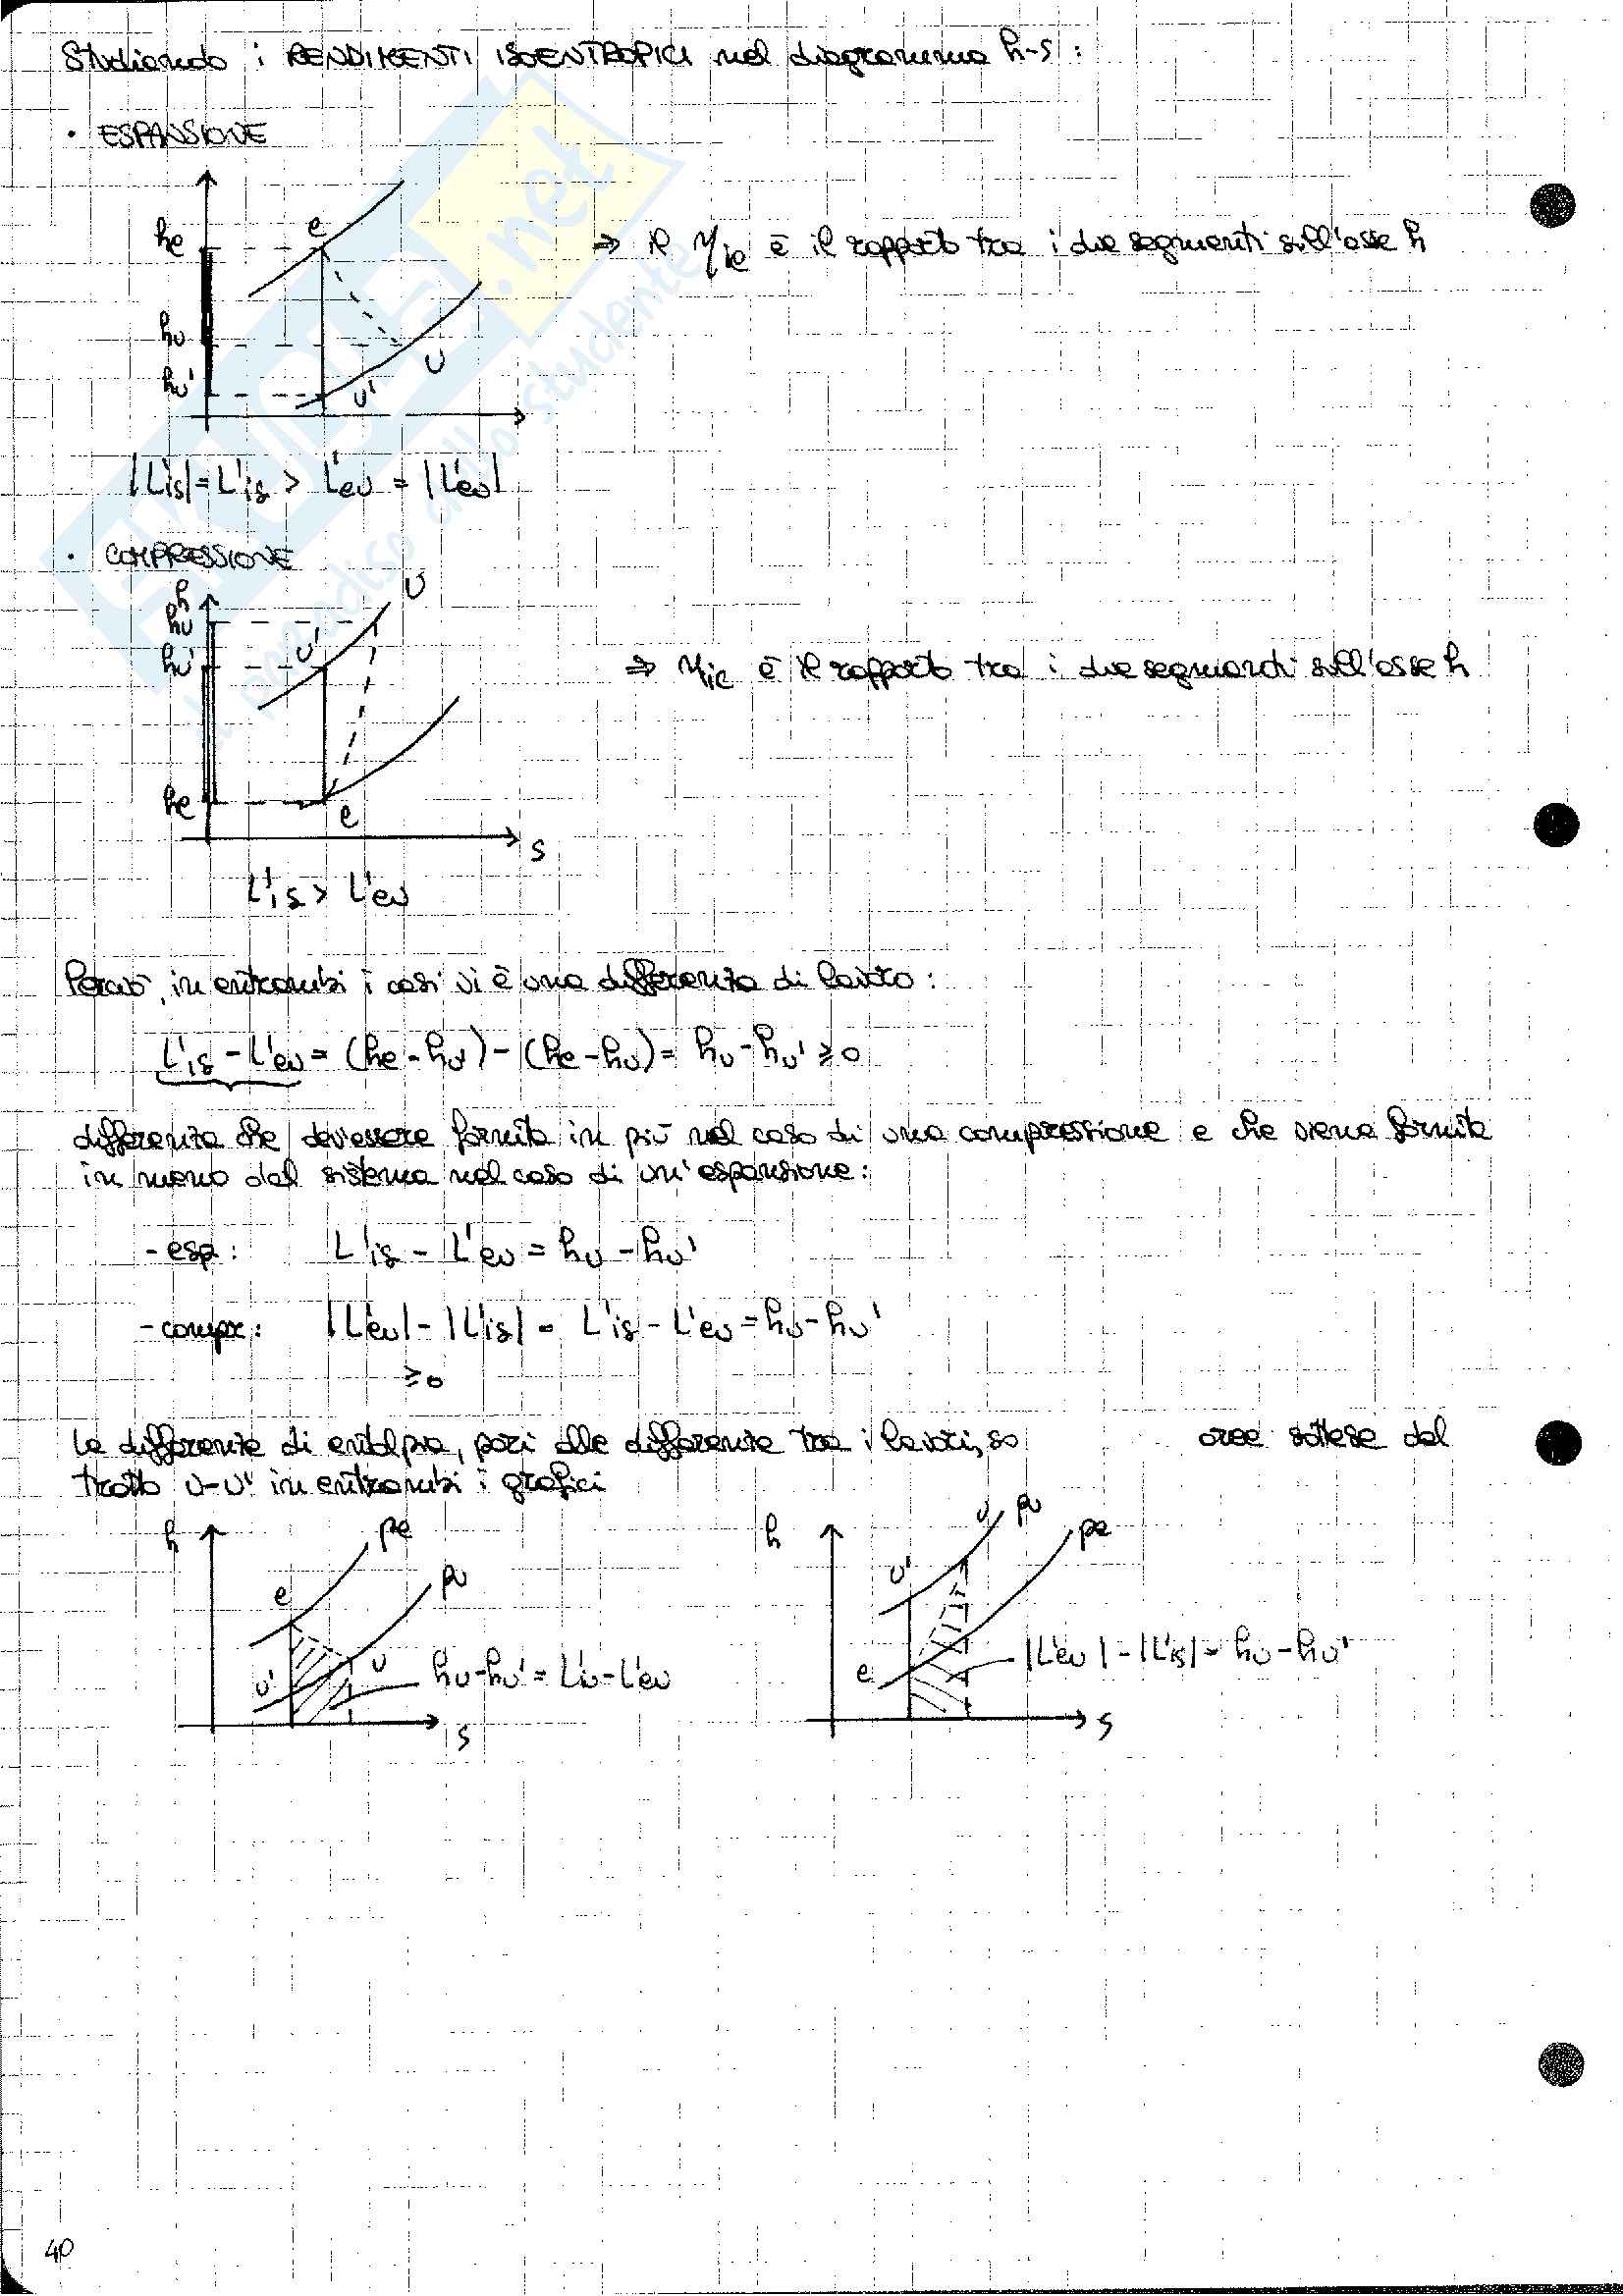 Studiando i RENDIMENTI ISOENTROPICI nel diagramma h-s:
• ESPANSIONE
he
e
hu
hu'
u
u'
⇒ il ηie è il rapporto tra i due segmenti sull'asse h
|L'is| = L'is > L'eu = |L'eu|
• COMPRESSIONE
h
hu
u
hu'
u'
he
e
s
⇒ ηic è il rapporto tra i due segmenti sull'asse h
L'is > L'eu
Perciò, in entrambi i casi vi è una differenza di lavoro:
L'is - L'eu = (he - hu') - (he - hu) = hu - hu' ≥ 0
differenza che dev'essere fornita in più nel caso di una compressione e che viene fornita
in meno dal sistema nel caso di un'espansione:
- esp: L'is - L'eu = hu - hu'
- compr: |L'eu| - |L'is| = L'is - L'eu = hu - hu'
≥ 0
Le differenze di entalpia, pari alle differenze tra i lavori, so aree sottese dal
tratto u-u' in entrambi i grafici
h
pe
e
pu
u
u'
hu - hu' = L'iu - L'eu
s
h
u
pu
pe
u'
e
|L'eu| - |L'is| = hu - hu'
s
40
.net
dello studente